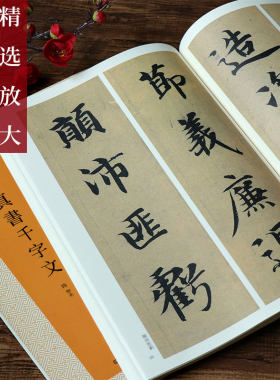 精选放大
真書千字文
造次
節義廉退
顛沛匪虧